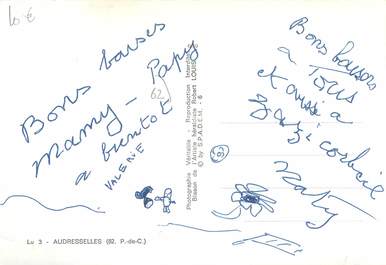 10 €
Bons baises
Mamy - Papy
a bientot
VALERIE
62
Lu 3 - AUDRESSELLES (62. P.-de-C.)
Photographie Véritable - Reproduction Interdite
Blason de l'Artiste héraldiste Robert LOUIS
© by S.P.A.D.E.M. - 6
Bons baisers
à Tous
et aussi à